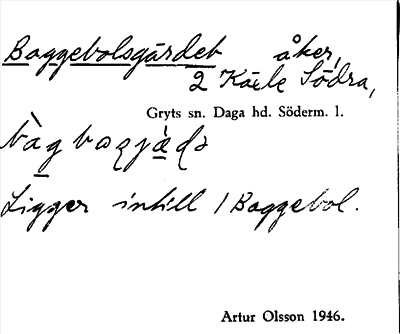 Baggebolsgärdet åker,
2 Kärle Södra,
Gryts sn. Daga hd. Söderm. l.
Ligger intill 1 Baggebol.
Artur Olsson 1946.